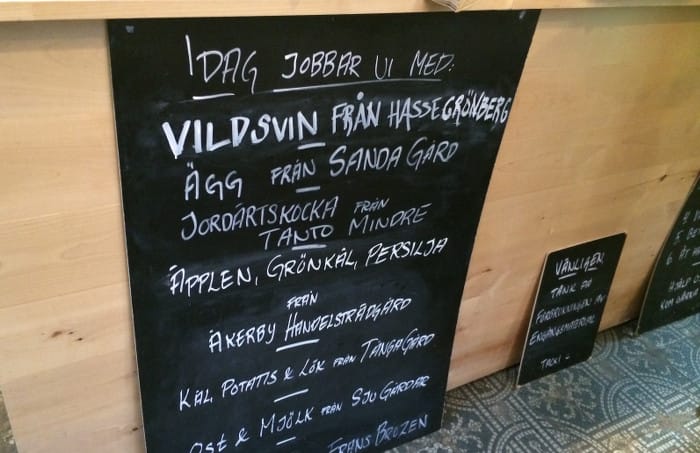 IDAG JOBBAR VI MED:
VILDSVIN FRÅN HASSE GRÖNBERG
ÄGG FRÅN SANDA GÅRD
JORDÄRTSKOCKA FRÅN
TANTO MINDRE
ÄPPLEN, GRÖNKÅL, PERSILJA
FRÅN
ÅKERBY HANDELSTRÄDGÅRD
KÅL, POTATIS & LÖK FRÅN TANGAGÅRD
OST & MJÖLK FRÅN SJU GÅRDAR
FRANS BROZEN
VÄNLIGEN
TÄNK PÅ
FÖRBRUKNINGEN AV
ENGÅNGSMATERIAL
TACK!
5 BE
6 ÄT
HJÄLP
KOM